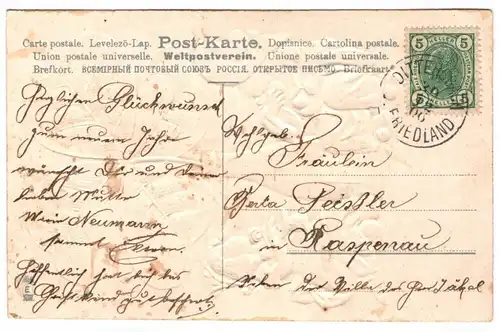 Carte postale. Levelező-Lap. Post-Karte. Dopisnice. Cartolina postale.
Union postale universelle. Weltpostverein. Unione postale universale.
Brefkort. ВСЕМІРНЫЙ ПОЧТОВЫЙ СОЮЗЪ РОССІЯ. ОТКРЫТОЕ ПИСЬМО. Briefkaart.
5 HELLER 5
5 5
FRIEDLAND
Herzlichen Glückwunsch
zum neuen Jahre
wünscht Dir und Deiner
lieben Mutter
Neumann
sammt
Hoffentlich hat dich das
Wohlgeb.
Fräulein
Berta Peistler
in
Raspenau
Neben der Villa des Herr